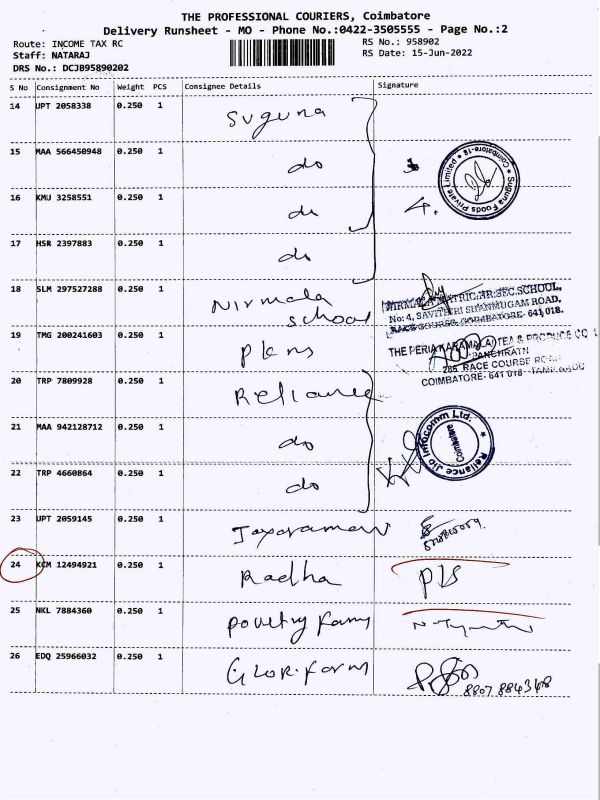 THE PROFESSIONAL COURIERS, Coimbatore
Delivery Runsheet - MO - Phone No.:0422-3505555 - Page No.:2
Route: INCOME TAX RC RS No.: 958902
Staff: NATARAJ RS Date: 15-Jun-2022
DRS No.: DCJB95890202
S No Consignment No Weight PCS Consignee Details Signature
14 UPT 2058338 0.250 1 Suguna
15 MAA 566450948 0.250 1 do
Suguna Foods Private Limited * Coimbatore-18 *
16 KMU 3258551 0.250 1 do 4.
17 HSR 2397883 0.250 1 do
18 SLM 297527288 0.250 1 Nirmala
school
NIRMALA MATRIC.HR.SEC.SCHOOL,
No: 4, SAVITHIRI SHANMUGAM ROAD,
RACE COURSE, COIMBATORE- 641 018.
19 TMG 200241603 0.250 1
THE PERIA KARAMALAI TEA & PRODUCE CO
PANCHRATN
286, RACE COURSE ROAD
COIMBATORE- 641 018 - TAMILNADU
20 TRP 7809928 0.250 1 Reliance
21 MAA 942128712 0.250 1 do
Reliance Jio Infocomm Ltd. *
Coimbatore
22 TRP 4660864 0.250 1 do
23 UPT 2059145 0.250 1 Jayaraman
24 KCM 12494921 0.250 1 Radha
25 NKL 7884360 0.250 1 poultry farm
26 EDQ 25966032 0.250 1
8807 884348